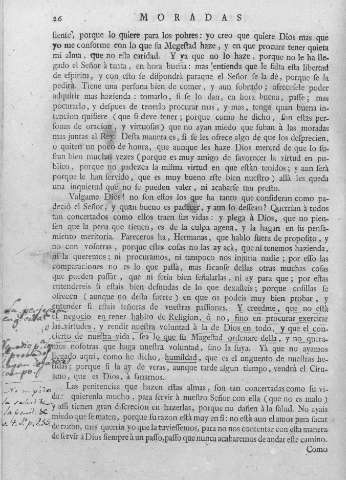 26 MORADAS
siente, porque lo quiere para los pobres: yo creo que quiere Dios mas que
yo me conforme con lo que su Magestad haze, y en que procure tener quieta
mi alma, que no esta caridad. Y ya que no lo haze, porque no le ha lle-
gado el Señor á tanto, en hora buena: mas entienda que le falta esta libertad
de espiritu, y con esto se dispondrá paraque el Señor se la dé, porque se la
pedirá. Tiene una persona bien de comer, y aun sobrado; ofrecesele poder
adquirir mas hazienda: tomarlo, si se lo dan, en hora buena, passe; mas
procurarlo, y despues de tenerlo procurar mas, y mas, tenga quan buena in-
tencion quisiere (que si deve tener; porque como he dicho, son estas perso-
nas de oracion, y virtuosas) que no ayan miedo que suban á las moradas
mas juntas al Rey. Desta manera es, si se les ofrece algo de que los desprecien,
o quiten un poco de honra, que aunque les haze Dios merced de que lo su-
fran bien muchas vezes (porque es muy amigo de favorecer la virtud en pu-
blico, porque no padezca la misma virtud en que están tenidos; y aun será
porque le han servido, que es muy bueno este bien nuestro) allá les queda
una inquietud que no se pueden valer, ni acabarse tan presto.
Valgame Dios! no son estos los que ha tanto que consideran como pa-
deció el Señor, y quan bueno es padecer, y aun lo dessean? Querrian á todos
tan concertados como ellos traen sus vidas: y plega á Dios, que no pien-
sen que la pena que tienen, es de la culpa agena, y la hagan en su pensa-
miento meritoria. Pareceros ha, Hermanas, que hablo fuera de proposito, y
no con vosotras, porque estas cosas no las ay acá, que ni tenemos hazienda,
ni la queremos; ni procuramos, ni tampoco nos injuria nadie; por esso las
comparaciones no es lo que passa, mas sacanse dellas otras muchas cosas
que pueden passar, que ni seria bien señalarlas, ni ay para que; por estas
entendereis si estais bien desnudas de lo que dexasteis; porque cosillas se
ofrecen (aunque no desta suerte) en que os podeis muy bien probar, y
entender si estais señoras de vuestras passiones. Y creedme, que no está
el negocio en tener habito de Religion, ó no, sino en procurar exercitar
las virtudes, y rendir nuestra voluntad á la de Dios en todo, y que el con-
cierto de nuestra vida, sea lo que su Magestad ordenare della, y no quera-
mos nosotras que se haga nuestra voluntad, sino la suya. Ya que no ayamos
llegado aqui, como he dicho, humildad, que es el unguento de nuestras he-
ridas; porque si la ay de veras, aunque tarde algun tiempo, vendrá el Ciru-
jano, que es Dios, á sanarnos.
Las penitencias que hazen estas almas, son tan concertadas como su vi-
da: quierenla mucho, para servir á nuestro Señor con ella (que no es malo)
y assi tienen gran discrecion en hazerlas, porque no dañen á la salud. No ayais
miedo que se maten, porque su razon está muy en si: no está aun el amor para sacar
de razon, mas querria yo que la tuviessemos, para no nos contentar con esta manera
de servir á Dios siempre á un passo, passo que nunca acabaremos de andar este camino.
Como